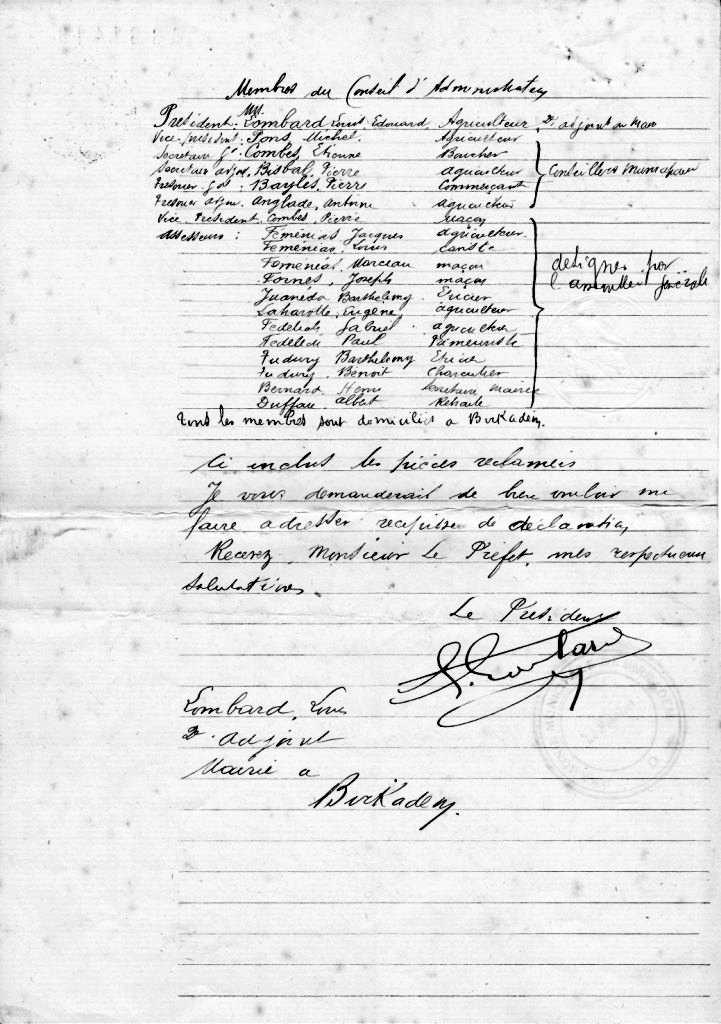 Membres du Conseil d'Administration
Président. MM. Lombard Louis-Edouard, Agriculteur, 2e adjoint au Maire
Vice-président. Pons, Michel. Agriculteur
Secretaire Gl. Combes, Etienne Boucher
Secretaire adjoi. Bisbal, Pierre agriculteur Conseillers Municipaux
Tresorier Gal: Bayles, Pierre Commerçant
Tresorier adjoi. Anglade, Antoine agriculteur
Vice. President. Combes, Pierre maçon
Assesseurs : Feménias Jacques agriculteur
Feménias Louis
Feménias Marceau maçon désignés par
Fornes, Joseph maçon l'assemblée générale
Juaneda Barthelemy Epicier
Laharotte, Eugène agriculteur
Fedelich Gabriel agriculteur
Fedelich Paul
Fudury Barthelemy Epicier
Fudury, Benoit Charcutier
Bernard Henri Secretaire mairie
Duffau albert Retraité
Tous les membres sont domiciliés a Birkadem.
Ci inclus les pièces reclameés
Je vous demanderait de bien vouloir me
faire adresser recipisse de déclaration,
Recevez, Monsieur Le Préfet, mes respectueuses
salutations
Le President
Lombard, Louis
2e adjoint
Mairie a
Birkadem.